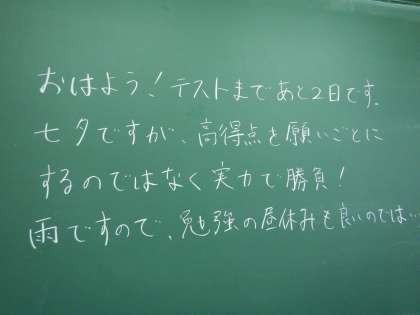 おはよう！テストまであと2日です。
七夕ですが、高得点を願いごとに
するのではなく実力で勝負！
雨ですので、勉強の昼休みも良いのでは…